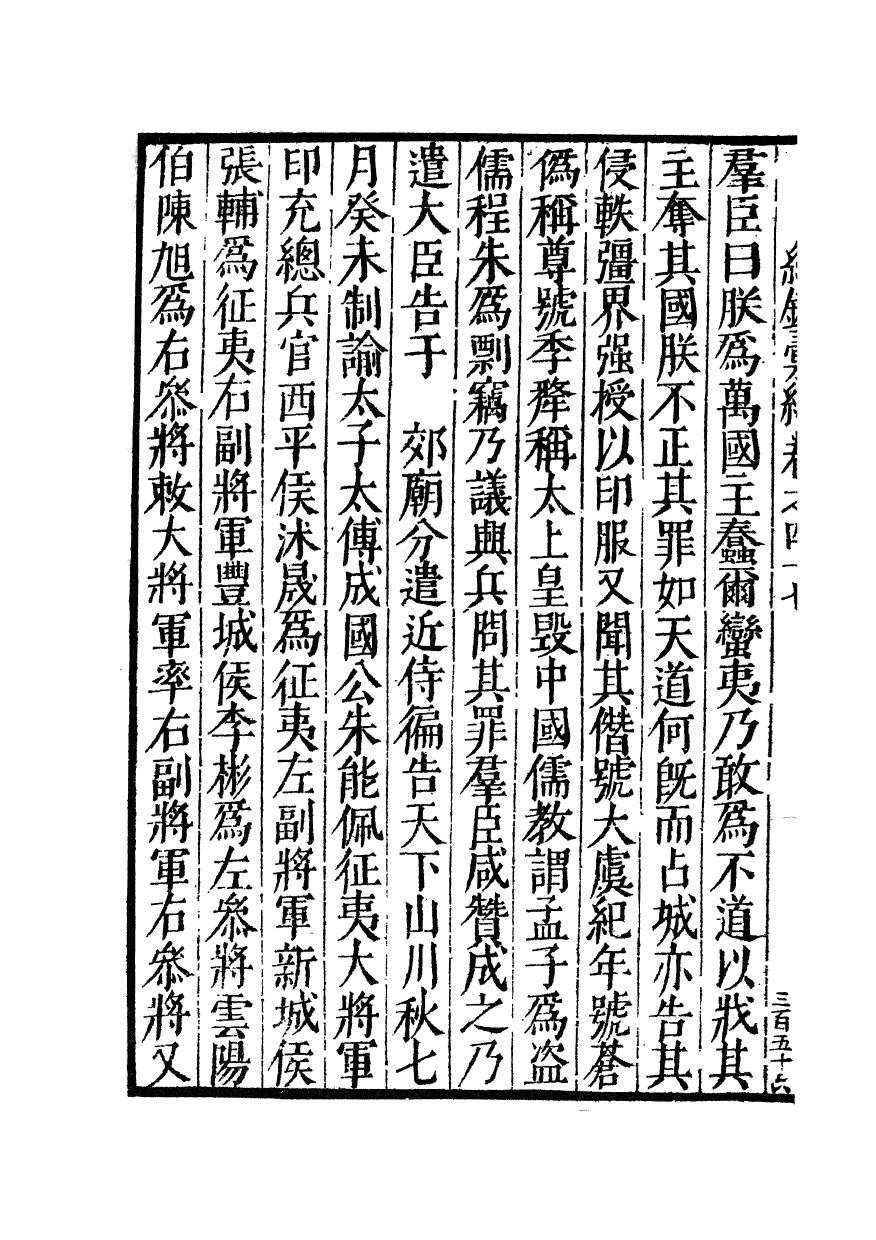 紀錄彙編卷之四十七
三百五十六
羣臣曰朕爲萬國主蠢爾蠻夷乃敢爲不道以戕其
主奪其國朕不正其罪如天道何旣而占城亦告其
侵軼彊界强授以印服又聞其僭號大虞紀年號蒼
僞稱尊號季犛稱太上皇毀中國儒教謂孟子爲盗
儒程朱爲剽竊乃議興兵問其罪羣臣咸贊成之乃
遣大臣告于　郊廟分遣近侍徧告天下山川秋七
月癸未制諭太子太傅成國公朱能佩征夷大將軍
印充總兵官西平侯沐晟爲征夷左副將軍新城侯
張輔爲征夷右副將軍豐城侯李彬爲左叅將雲陽
伯陳旭爲右叅將敕大將軍率右副將軍右叅將又